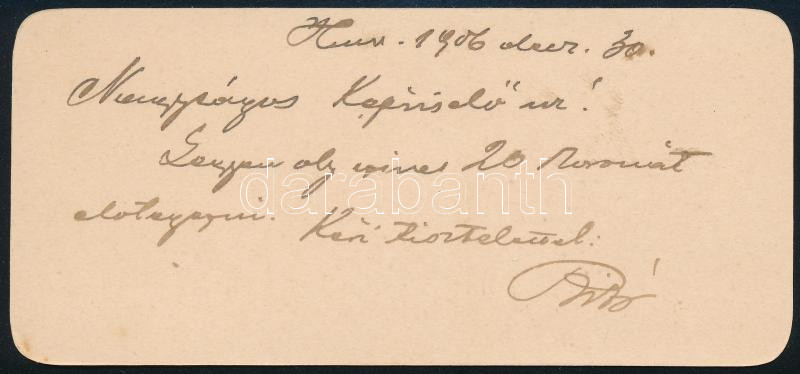 1906 decz. 30.
Nagyságos Képviselő úr!
Legyen oly szives 20 koronát
előlegezni. Kéri tisztelettel:
Bíró
darabanth